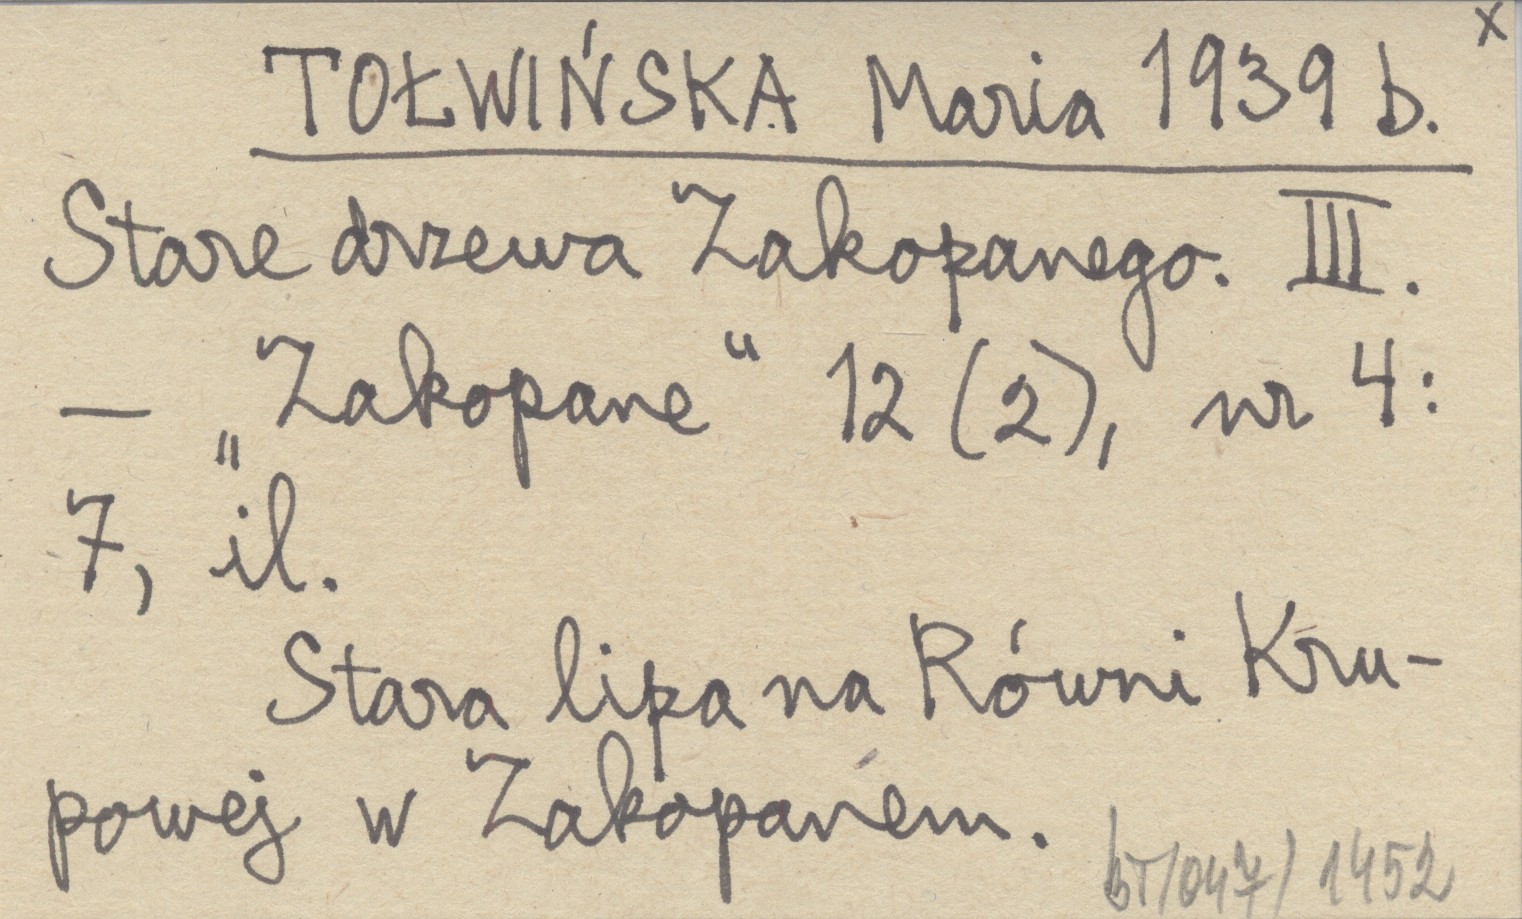 x
TOŁWIŃSKA Maria 1939 b.
Stare drzewa Zakopanego. III.
— „Zakopane“ 12 (2), nr 4:
7, il.
Stara lipa na Równi Kru-
powej w Zakopanem.
bT/047/1452